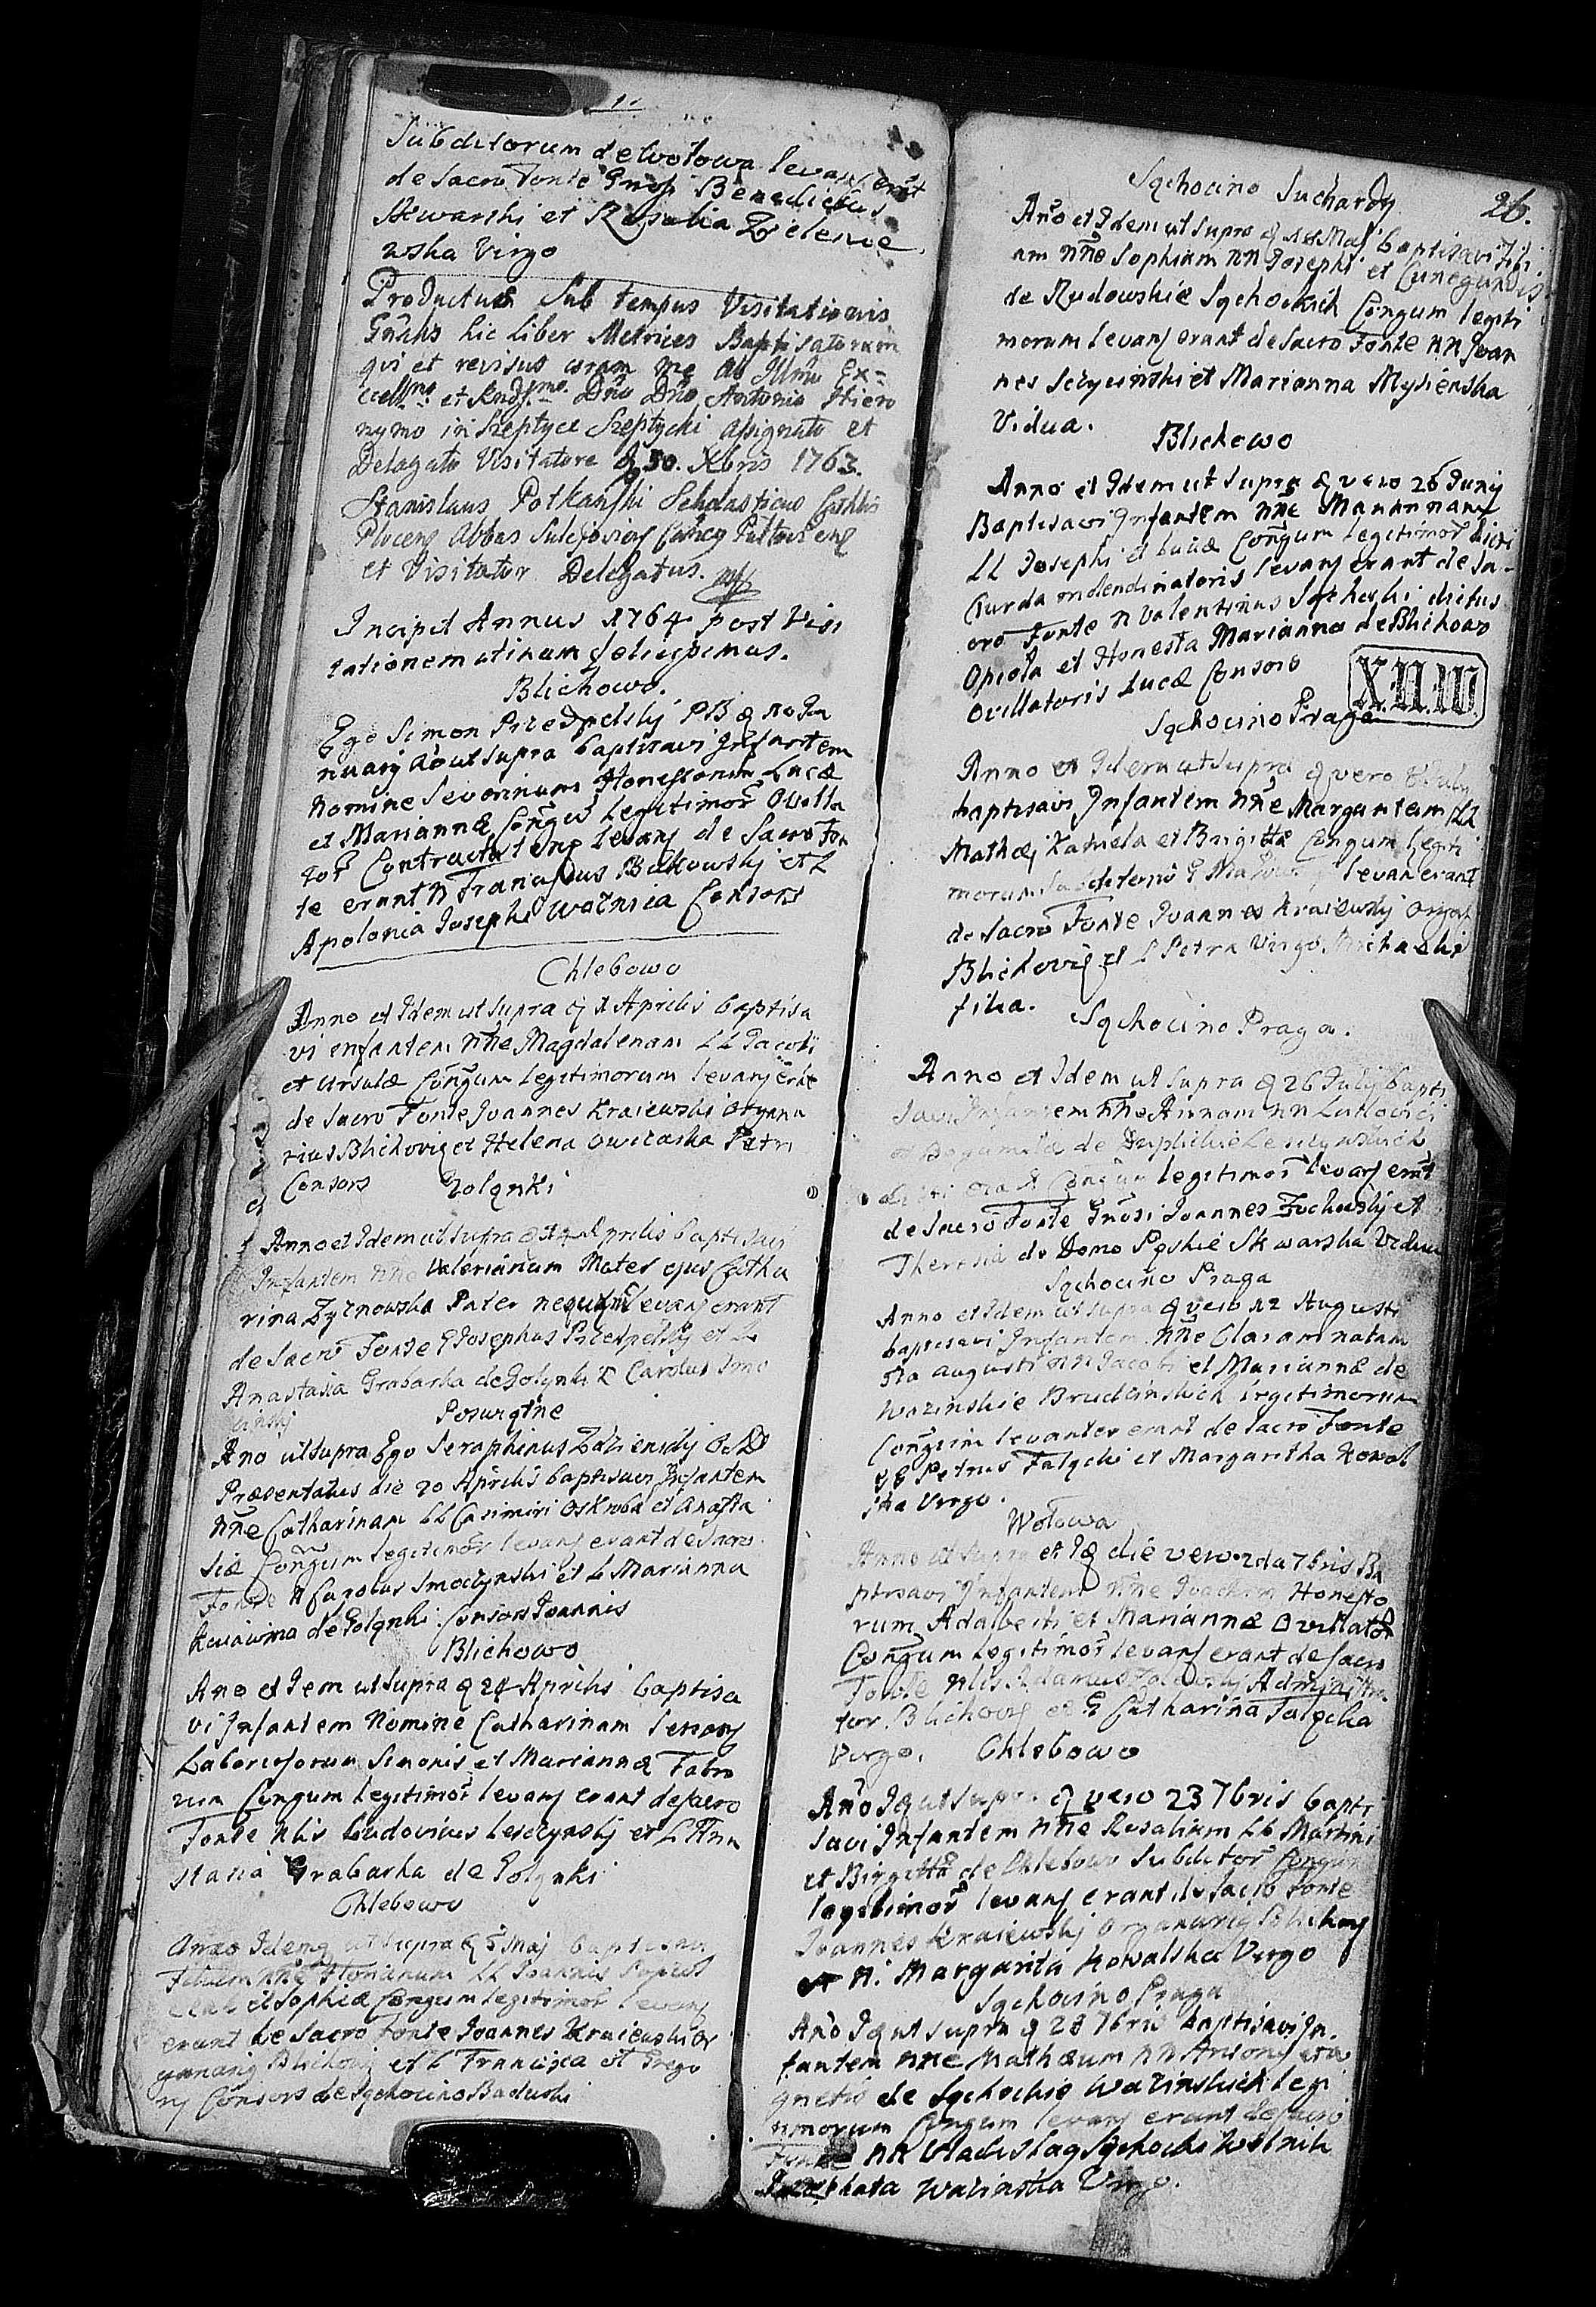 1.
Subditorum de Wołowa levaver̃nt
de Sacro Fonte Gnosi Benedictus
Skwarski et Rosalia Zelence
wska Virgo
Productus Sub tempus Visitationis
Gnrlis hic Liber Metrices Baptisatorum
qui et revisus coram me ab Illmo Ex-
cellmo et Rndsmo Dño Dño Antonio Hiero
nymo in Szeptyce Szeptycki Assignato et
Delegato Visitatore d 30. Xbris 1763.
Stanislaus Potkanski Scholasticus Cathlis
Plocens Abbas Sulejoviens
et Visitator Delegatus. mp
Incipit Annus 1764 post Visi
tationem utinam
Blichowo.
Ego Simon Przedpelskj PB d 10 Ja
nuarij Ao ut supra baptisavi Infantem
Nomine Severinum Honestorum Lucæ
et Mariannæ Cong̃u Legitimor̃ Ovilla
tor̃ levans de Sacro Fon
te erant N Franciscus Bukowskj et L
Apolonia Josephi Woznica Consors
Chlebowo
Anno et Idem ut supra d 1 Aprilis baptisa
vi infantem Nñe Magdalenam LL Jacobi
et Ursulæ Cong̃um legitimorum levans erãt
de Sacro Fonte Joannes Kraiewski Organa
rius Blichovien et Helena Owczaska Petri
Consors
Goląnki
Anno et Idem ut supra d Aprilis baptisavi
Infantem Nñe Valerianum Mater ejus Catha
rina Zyznowska Pater nequam levans erant
de Sacro Fonte G Josephus Przedpelskj et L
Anastasia Grabarka de Golynki Carolus Smo
cinskj
Posurgine
Ano ut supra Ego Seraphinus Zdzienskj
Præsentatus die 20 Aprilis baptisavi Infantem
Nñe Catharinam LL Casimiri Oskroba et Anasta
siæ Cong̃um legitimor̃ levans erant de Sacro
Fonte N Carolus Smoczynski et L Marianna
Kuiawina de Golynki Consors Joannis
Blichowo
Ano et Idem ut supra d 24 Aprilis baptisa
vi Infantem Nomine Catharinam
Laboriosorum Simonis et Mariannæ Fabro
rum Congum legitimor̃ levans erant de Sacro
Fonte Nlis Ludovicus Lesczynskj et L Ana
stasia Grabarka de Golynki
Chlebowo
Anno Idemq ut supra d 5 Maj baptisavi
Filium Nñe Florianum LL Joannis
et Sophiæ Congum legitimor̃ levans
erant de Sacro Fonte Joannes Kraiewski Or
ganarig Blichovien et L Francisca et Grego
rij Consors de Sąchocino Baduski
26.
Sąchocino Suchardy
Año et Idem ut supra d Maj baptisavi Fili
am Nñe Sophiam NN Josephi et Cunegundis
de Rudowskie Sąchockich Congum legiti
morum levans erant de Sacro Fonte NN Joan
nes et Marianna Mysienska
Vidua.
Blichowo
Anno et Idem ut supra d vero 26 Junij
Baptisavi Infantem Nñe Mariannam
LL Josephi et Luciæ Cong̃um legitimor̃ dicti
Ciurda molendinatoris levans erant de Sa-
cro Fonte N Valentinus Sąchocki dictus
Opiola et Honesta Marianna de Blichowo
Ovillatoris Lucæ Consors
X.II.III.
Sąchocino Praga
Anno et Idem ut supra d vero Julij
baptisavi Infantem Nñe Margaretam LL
Mathæj et Brigittæ Congum legiti
morum levans erant
de Sacro Fonte Joannes Kraiewskj Organ
Blichovien et L Petra Virgo Michaelis
filia.
Sąchocino Praga.
Anno et Idem ut supra d 26 Julij bapti
savi Infantem Nñe Annam NN Ludovici
et Bogumila de
legitimor̃ levans erãnt
de Sacro Fonte Gnosi Joannes Zochowskj et
Theresia de Domo Pąskie Skwarska Vidua
Sąchocino Praga
Anno et Idem ut supra d vero 12 Augusti
baptisavi Infantem Nñe Claram natam
Augusti NN Jacobi et Mariannæ de
Wazinskie Brudzinskich legitimorum
Congum levantes erant de Sacro Fonte
G Petrus Falęcki et Margaritha Kowal
ska Virgo.
Wołowa
Anno ut supra et Id die vero 2da 7bris Ba
ptisavi Infantem Nñe Joachim Honesto
rum Adalberti et Mariannæ Ovillator̃
Congum legitimor̃ levans erant de Sacro
Fonte Nlis Adamus Administra
tor Blichovien et G Catharina Falęcka
Virgo.
Chlebowo
Año Id ut supra d vero 23 7bris bapti
savi Infantem Nñe Rosaliam LL Martini
et Birgittæ de Chlebowo Subditor̃ Congum
legitimor̃ levans erant de Sacro Fonte
Joannes Kraiewskj Organarig Blichov
et N. Margarita Kowalska Virgo
Sąchocino Praga
Año Id ut supra d 28 7bris baptisavi In-
fantem Nñe Mathæum NN Antonij et A
gnetis de Sąchockie Wazinskich legi
timorum Congum levans erant de Sacro
Fonte NN Vladislag Sąchocki Wolnik
Jozephata Wazinska Virgo.